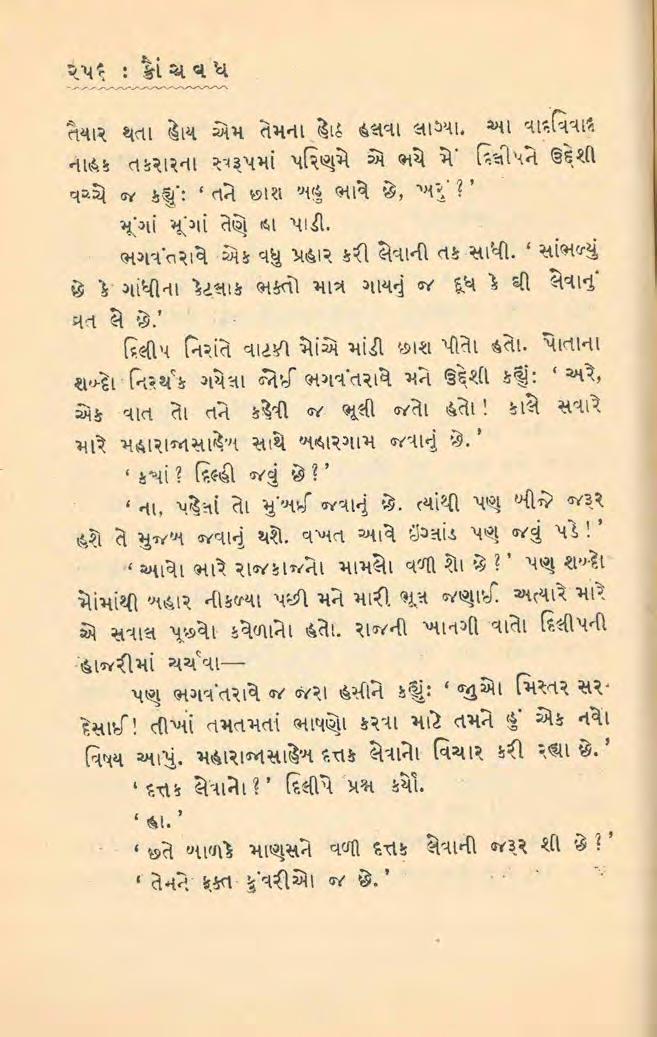 ૨૫૬ : ક્રૌંચવધ
તૈયાર થતા હોય એમ તેમના હોઠ હલવા લાગ્યા. આ વાદવિવાદ
નાહક તકરારના સ્વરૂપમાં પરિણમે એ ભયે મેં દિલીપને ઉદ્દેશી
વચ્ચે જ કહ્યું: ‘ તને છાશ બહુ ભાવે છે, ખરું ? ’
મૂંગાં મૂંગાં તેણે હા પાડી.
ભગવંતરાવે એક વધુ પ્રહાર કરી લેવાની તક સાધી. ‘ સાંભળ્યું
છે કે ગાંધીના કેટલાક ભક્તો માત્ર ગાયનું જ દૂધ કે ઘી લેવાનું
વ્રત લે છે.’
દિલીપ નિરાંતે વાટકી મોંએ માંડી છાશ પીતો હતો. પોતાના
શબ્દો નિરર્થક ગયેલા જોઈ ભગવંતરાવે મને ઉદ્દેશી કહ્યું: ‘ અરે,
એક વાત તો તને કહેવી જ ભૂલી જતો હતો ! કાલે સવારે
મારે મહારાજાસાહેબ સાથે બહારગામ જવાનું છે. ’
‘ ક્યાં ? દિલ્હી જવું છે ? ’
‘ ના, પહેલાં તો મુંબઈ જવાનું છે. ત્યાંથી પણ બીજે જરૂર
હશે તે મુજબ જવાનું થશે. વખત આવે ઇંગ્લાંડ પણ જવું પડે ! ’
‘ આવો ભારે રાજકાજનો મામલો વળી શો છે ? ’ પણ શબ્દો
મોંમાંથી બહાર નીકળ્યા પછી મને મારી ભૂલ જણાઈ. અત્યારે મારે
એ સવાલ પૂછવો કવેળાનો હતો. રાજની ખાનગી વાતો દિલીપની
હાજરીમાં ચર્ચવા—
પણ ભગવંતરાવે જ જરા હસીને કહ્યું: ‘ જુઓ મિસ્તર સર-
દેસાઈ ! તીખાં તમતમતાં ભાષણો કરવા માટે તમને હું એક નવો
વિષય આપું. મહારાજાસાહેબ દત્તક લેવાનો વિચાર કરી રહ્યા છે. ’
‘ દત્તક લેવાનો ? ’ દિલીપે પ્રશ્ન કર્યો.
‘ હા. ’
‘ છતે બાળકે માણસને વળી દત્તક લેવાની જરૂર શી છે ? ’
‘ તેમને ફક્ત કુંવરીઓ જ છે. ’